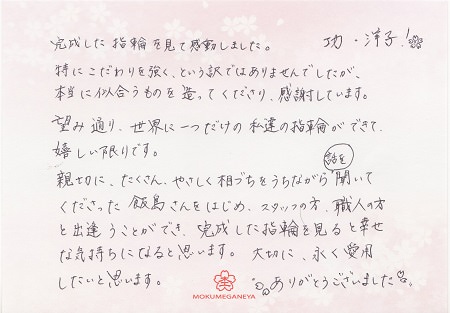 完成した指輪を見て感動しました。
功・洋子!
特にこだわりを強く、という訳ではありませんでしたが、
本当に似合うものを造ってくださり、感謝しています。
望み通り、世界に一つだけの私達の指輪ができて、
嬉しい限りです。
親切に、たくさん、やさしく相づちをうちながら話を聞いて
くださった飯島さんをはじめ、スタッフの方、職人の方
と出逢うことができ、完成した指輪を見ると幸せ
な気持ちになると思います。大切に、永く愛用
したいと思います。
ありがとうございました
MOKUMEGANEYA